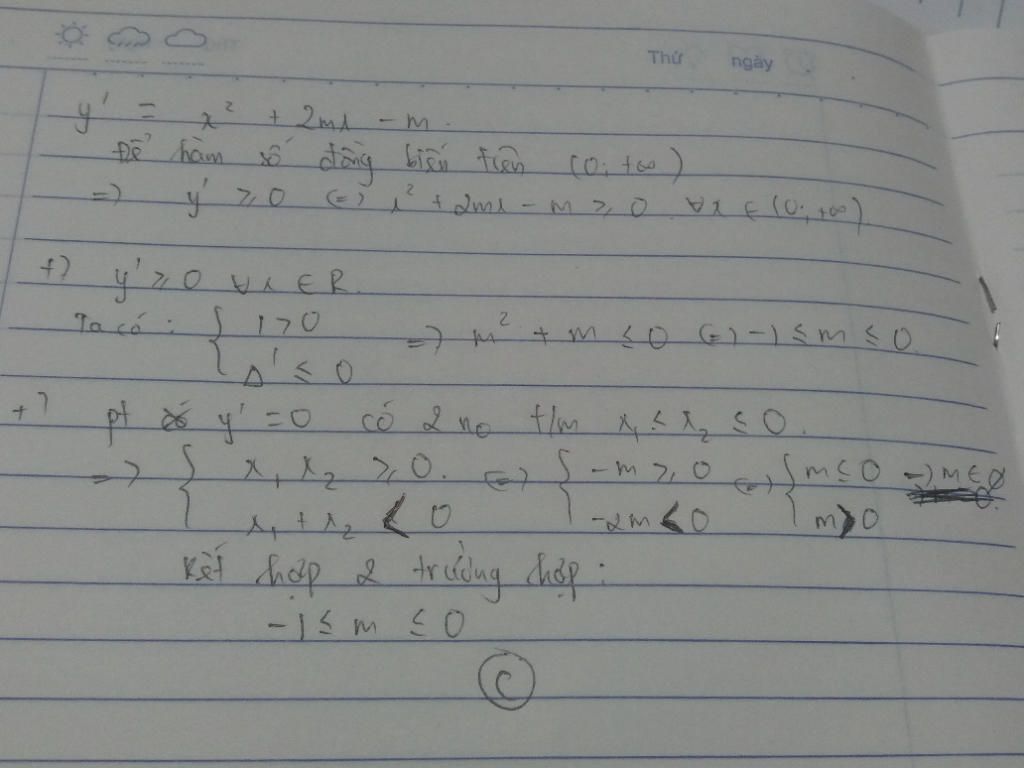 Thứ ngày
y' = x² + 2mx - m.
Để hàm số đồng biến trên (0; +∞)
=> y' ≥ 0 (=) x² + 2mx - m ≥ 0 ∀x ∈ (0; +∞)
+) y' ≥ 0 ∀x ∈ R.
Ta có: { 1 > 0
Δ' ≤ 0 => m² + m ≤ 0 (=) -1 ≤ m ≤ 0
+) pt y' = 0 có 2 no t/m x₁ ≤ x₂ ≤ 0.
=> { x₁ x₂ ≥ 0. (=) { -m ≥ 0 (=) { m ≤ 0 => m ∈ ∅
x₁ + x₂ < 0 -2m < 0 m > 0
Kết hợp 2 trường hợp:
-1 ≤ m ≤ 0
C